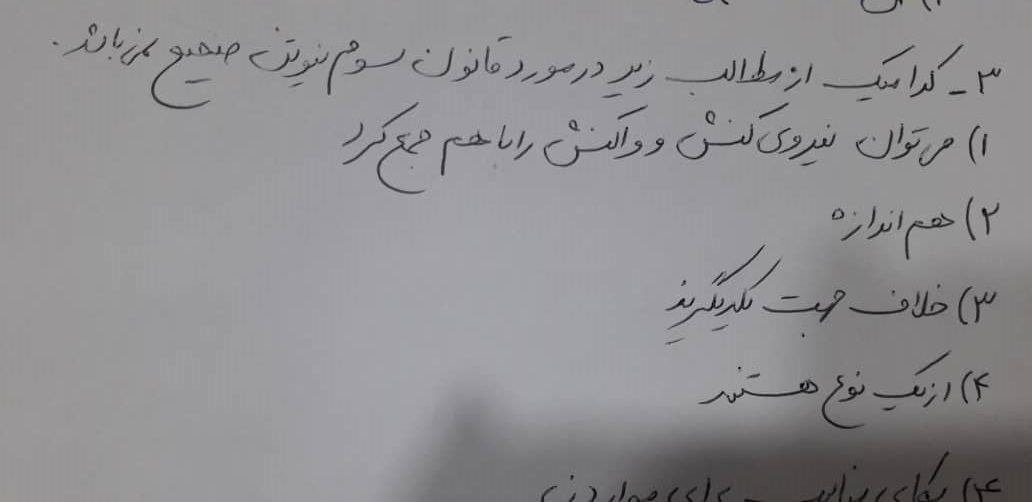 ۳- کدامیک از مطالب زیر در مورد قانون سوم نیوتن صحیح نمی‌باشد.
۱) می‌توان نیروی کنش و واکنش را با هم جمع کرد
۲) هم اندازه
۳) خلاف جهت یکدیگرند
۴) از یک نوع هستند